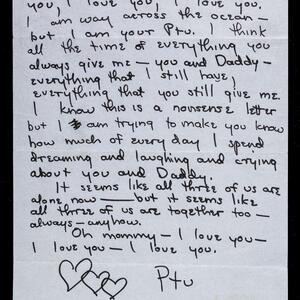 you, I love you, I love you.
I am way across the ocean –
but I am your Ptu. I think
all the time of everything you
always give me – you and Daddy –
everything that I still have,
everything that you still give me.
I know this is a nonsense letter
but I am trying to make you know
how much of every day I spend
dreaming and laughing and crying
about you and Daddy.
It seems like all three of us are
alone now — but it seems like
all three of us are together too –
always – anyhow.
Oh mommy – I love you –
I love you – I love you.
Ptu